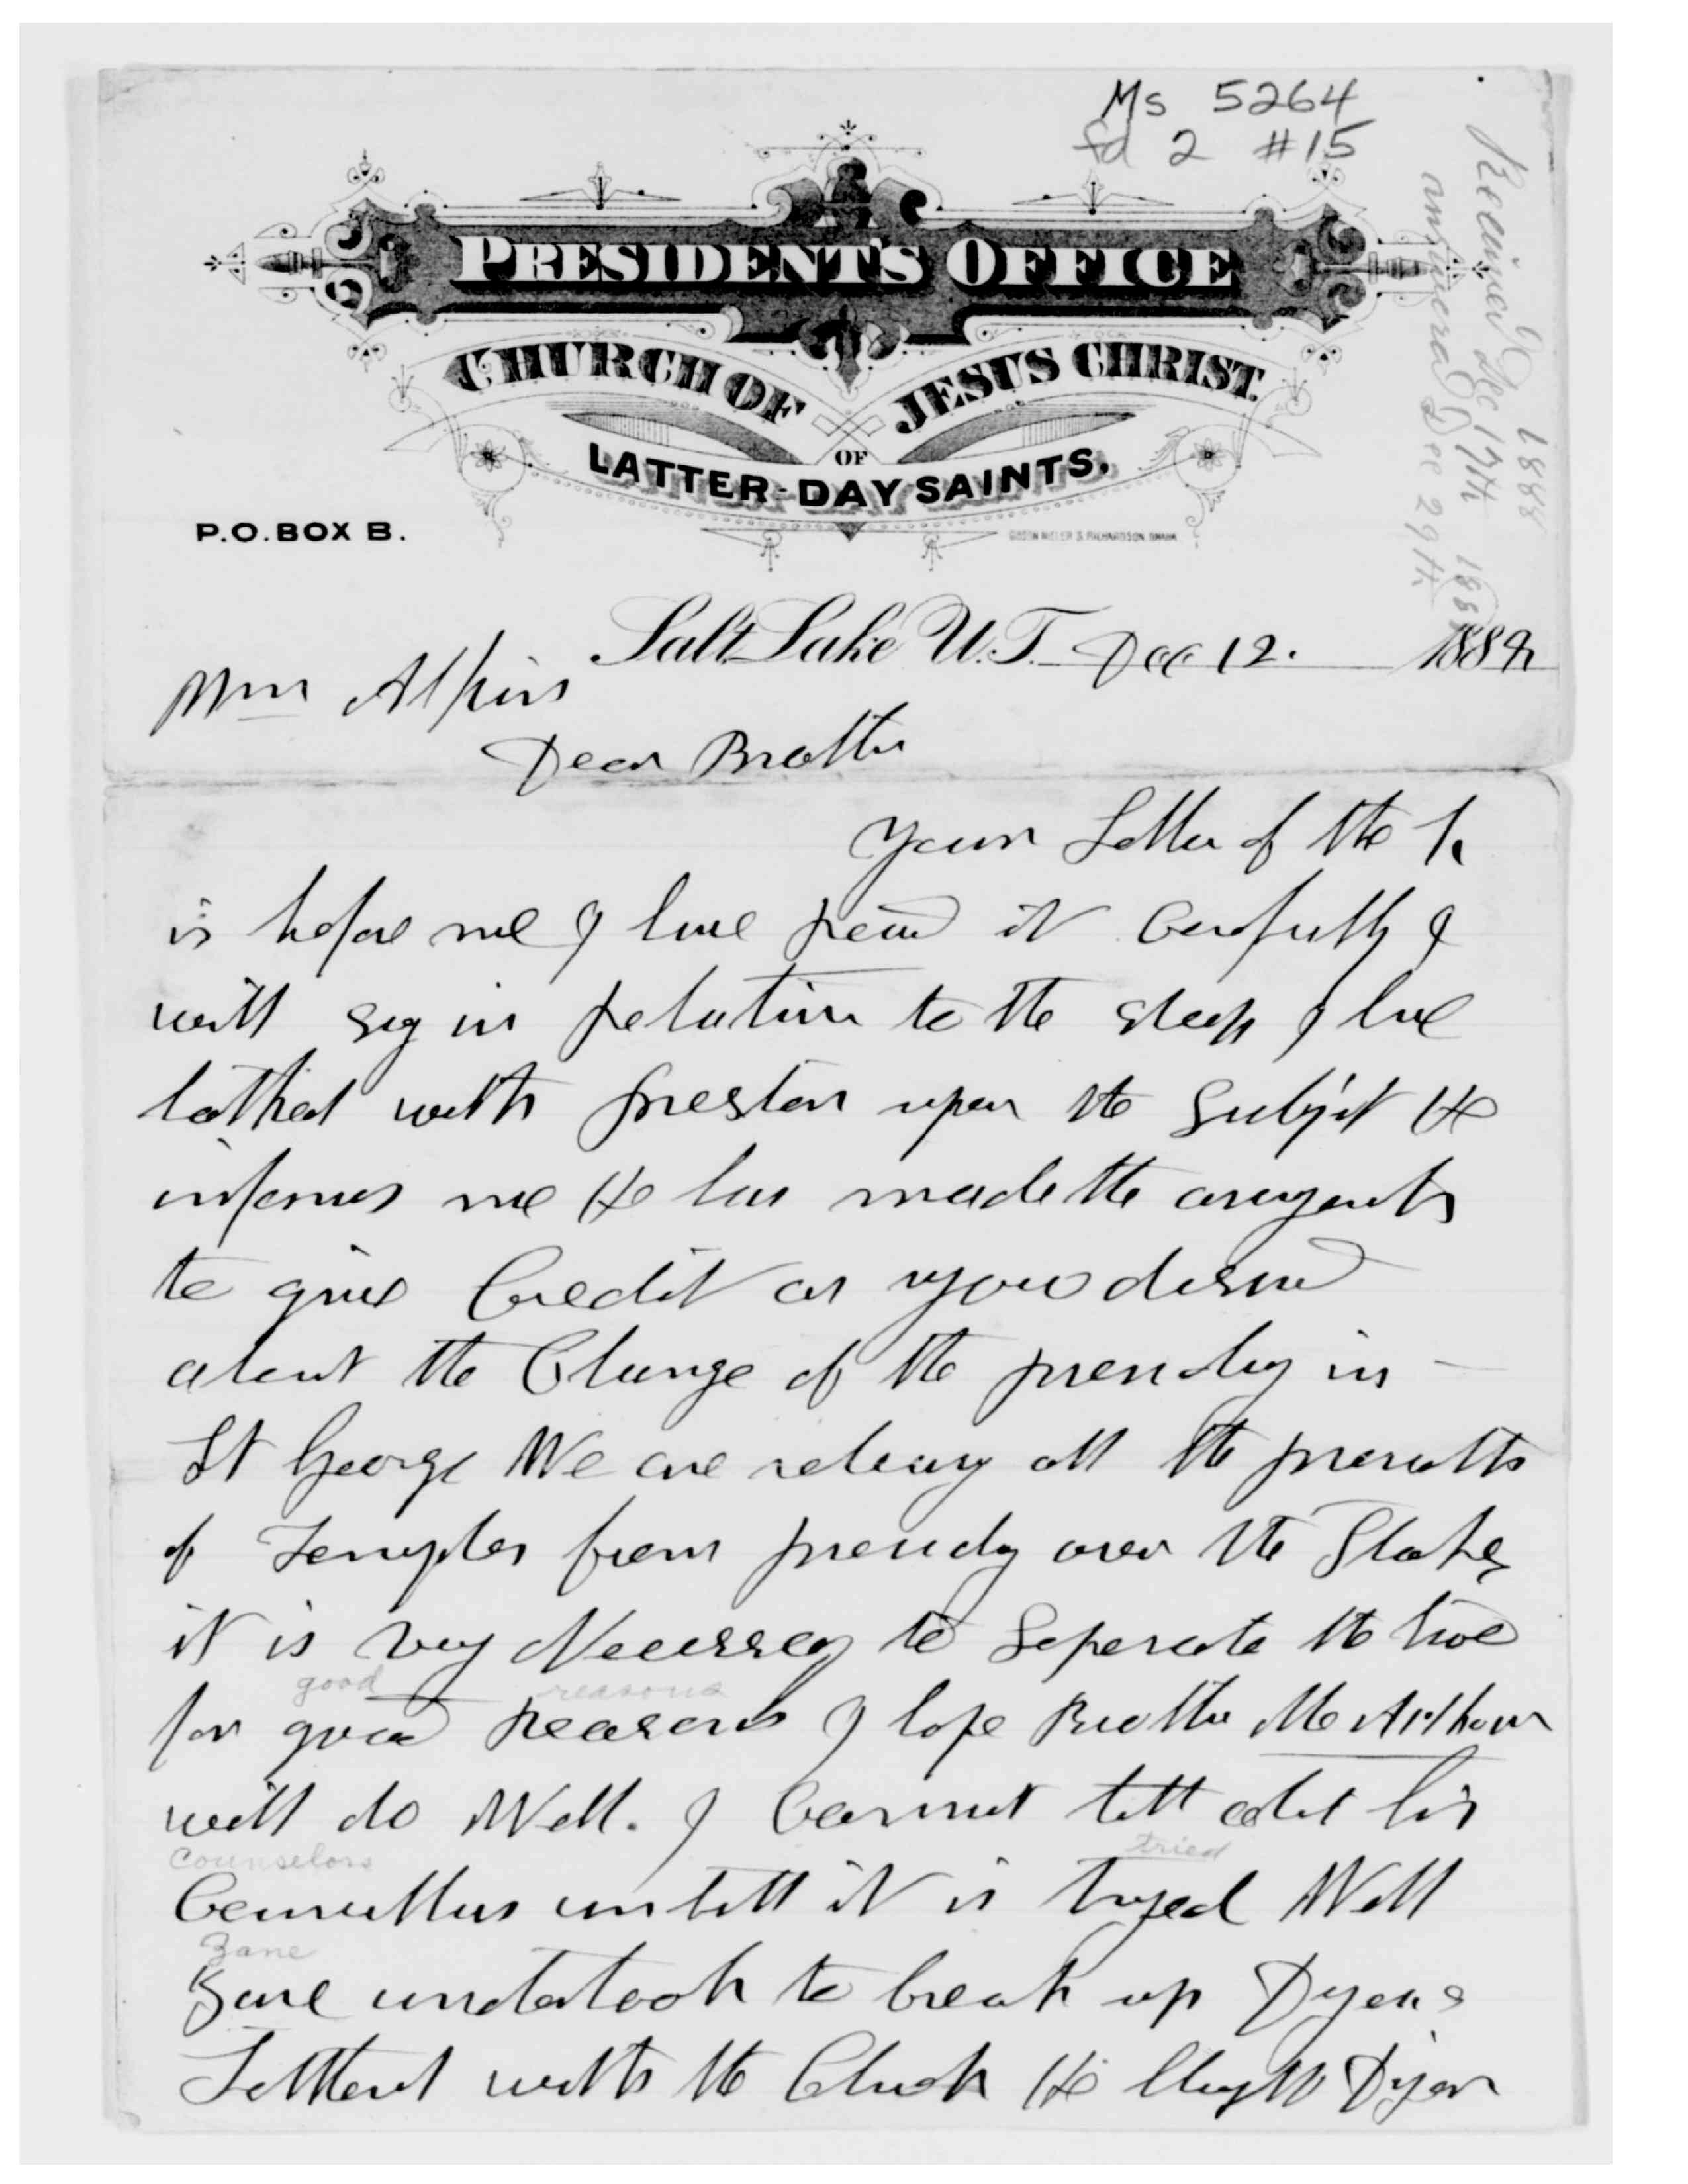 Ms 5264
fd 2 #15
Received Dec 17th 1888
answered Dec 29th 1888
PRESIDENT'S OFFICE
CHURCH OF JESUS CHRIST
OF
LATTER-DAY SAINTS.
P.O. BOX B.
Salt Lake U.T. Dec 12. 1888
Wm Atkins
Dear Brother
Your Letter of the
is before me I have read it Carefully I
will say in relation to the sheep I have
talked with preston upon the Subjet He
informes me He has made the arangents
to give Credit as you desired
about the Change of the presidey in
St George We are releasing all the presidents
of Temples from presidy over the Stakes
it is very Necessary to Seperate the two
good reasons
for good reasons I hope Brother McArthur
will do Well. I Cannot till about his
counselors tried
Councillors untill it is tryed Will
Zane
Zane undertook to break up Dyers
Settlent with the Church He Dyer